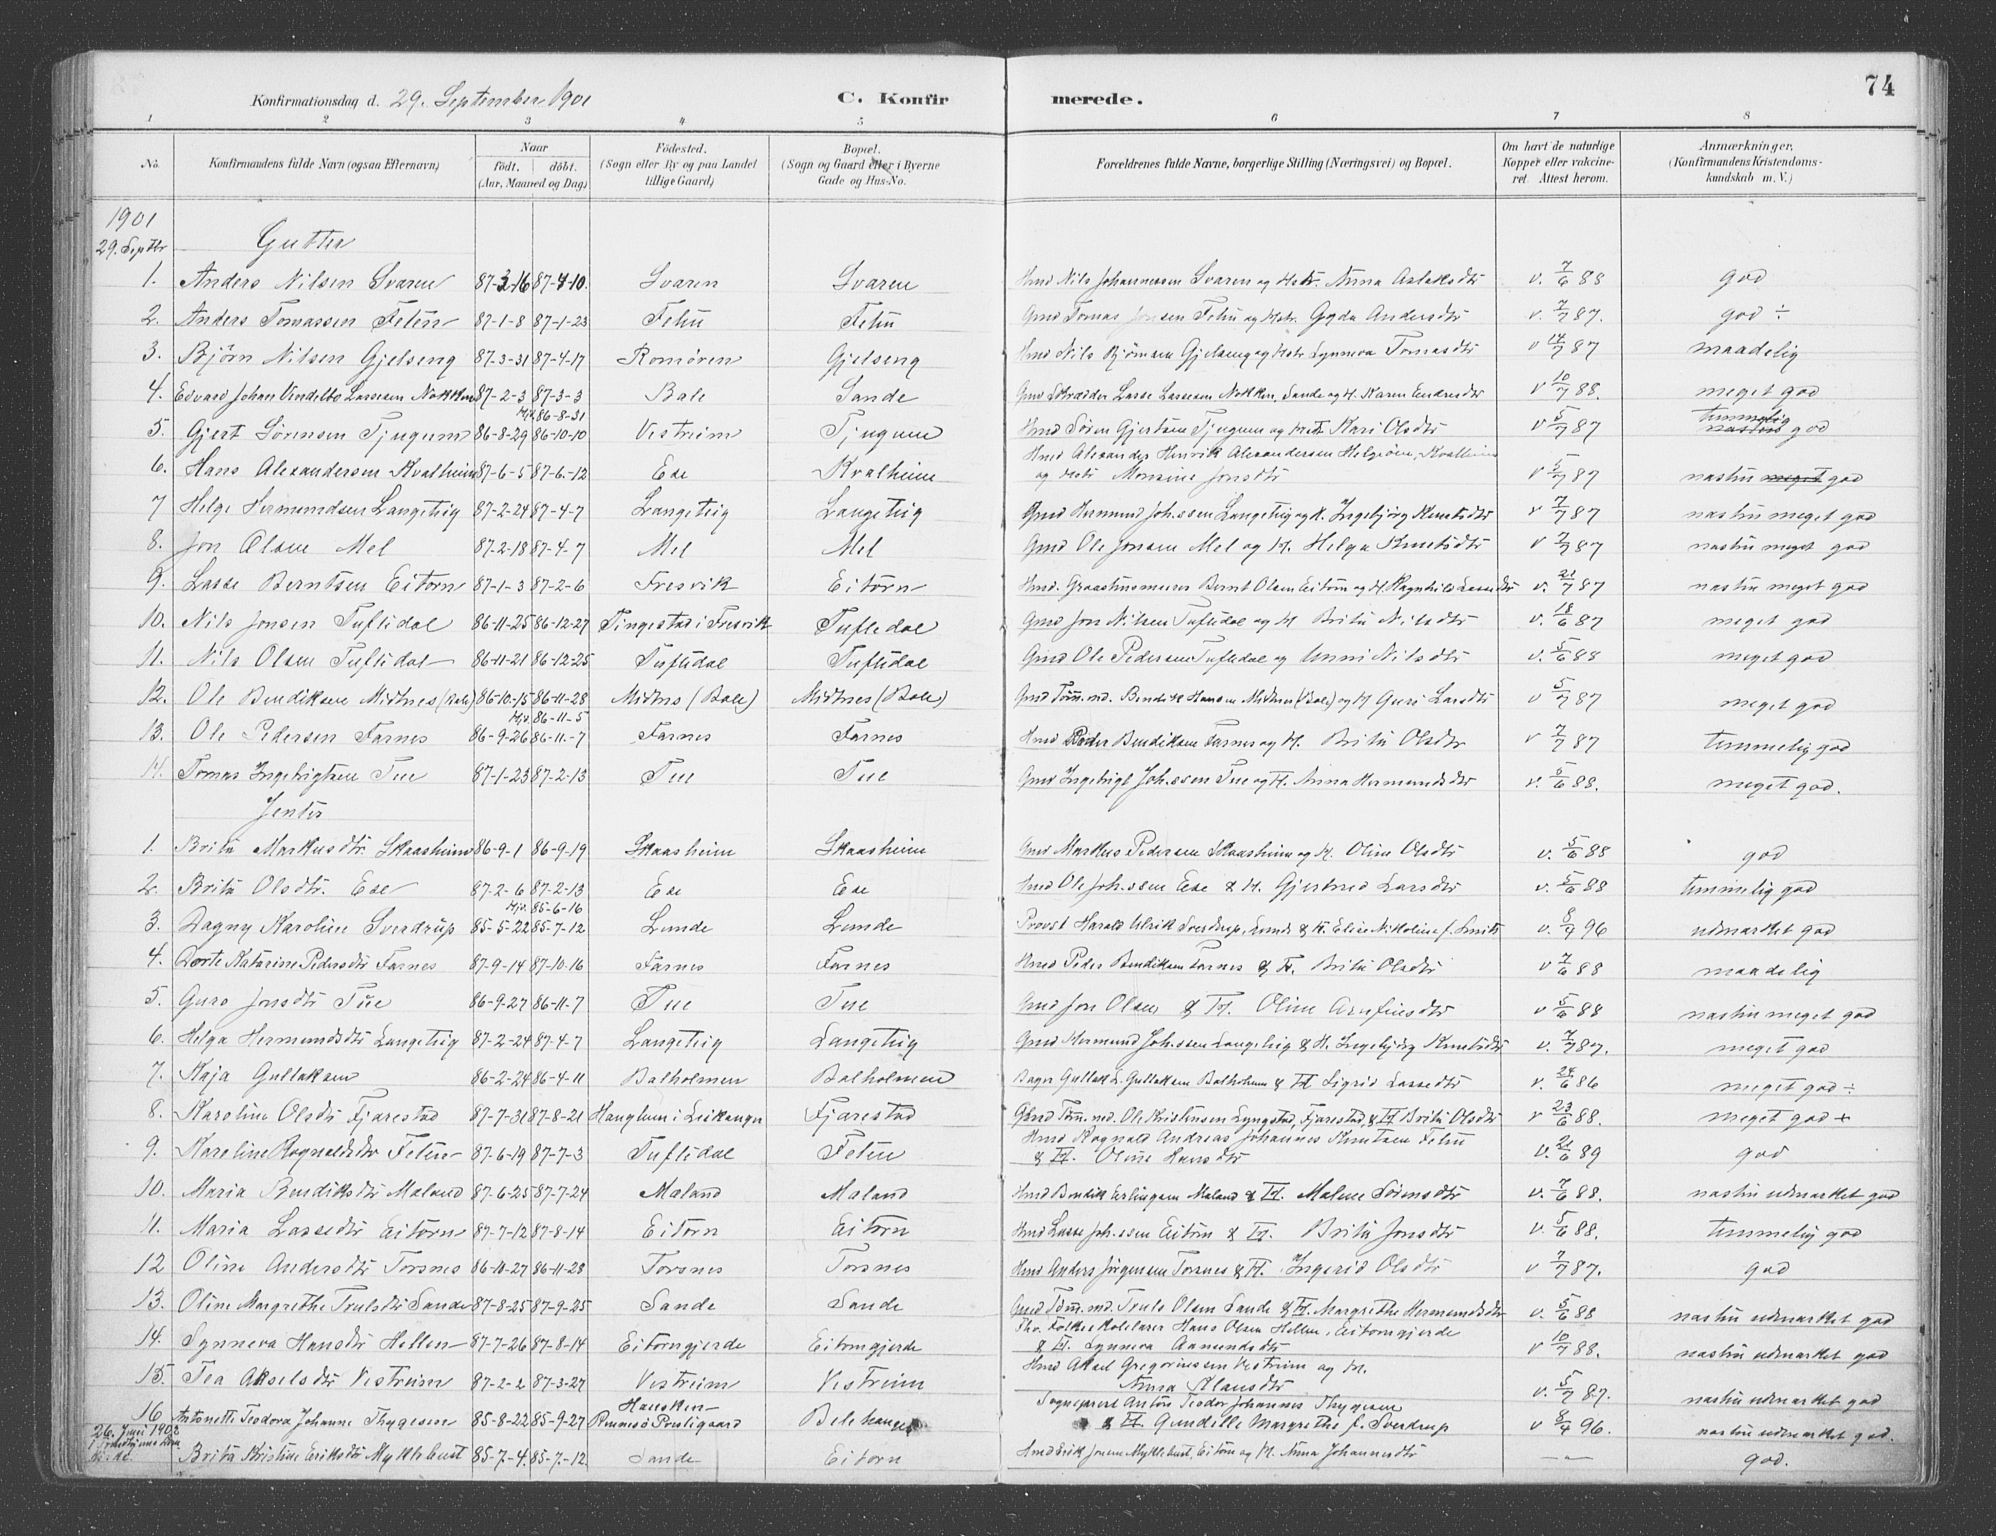 74
Konfirmationsdag d. 29. September 1901 C. Konfirmerede.
1 2 3 4 5 6 7 8
No. Konfirmandens fulde Navn (ogsaa Efternavn) Naar født. døbt. (Aar, Maaned og Dag) Fødested. (Sogn eller By og paa Landet tillige Gaard) Bopæl. (Sogn og Gaard eller i Byerne Gade og Hus-No. Forældrenes fulde Navne, borgerlige Stilling (Næringsvei) og Bopæl. Om havt de naturlige Kopper eller vakcineret. Attest herom. Anmærkninger. (Konfirmandens Kristendomskundskab m. V.)
1901
29. Septbr Gutter
1. Anders Nilsen Svaren 87-3-16 87-4-10. Svaren Svaren Gmd Nils Johannessen Svaren og Hstr. Anna Aslaksdtr v. 7/6 88 god
2. Anders Tomassen Fetin 87-1-8 87-1-23 Feti Feti Gmd Tomas Jonsen Feti og Hstr. Gyda Andersdtr v. 7/7 87. god ÷
3. Bjørn Nilsen Gjelseng 87-3-31 87-4-17 Romøren Gjelseng Hmd Nils Bjørnsen Gjelseng og Hstr. Synneva Tomasdtr v 14/7 87 maadelig
4. Edvard Johan Vindelbo Lassesen Nokken 87-2-3 87-3-3 Bale Sande Gmd Skræder Lasse Lassesen Nokken, Sande og H. Karen Endresdtr v 10/7 88. meget god
Hjd. 86-8-31
5. Gjert Sørensen Tjugum 86-8-29 86-10-10 Vestreim Tjugum Hmd Søren Gjertsen Tjugum og Hstr. Kari Olsdtr v 5/7 87 temmelig god
6. Hans Alexandersen Kvalheim 87-6-5 87-6-12 Ese Kvalheim Hmd Alexander Henrik Alexandersen Helgeøen, Kvalheim
og Hstr Monsine Jonsdtr v 5/7 87 næsten meget god
7 Helge Hermundsen Langeteig 87-2-24 87-4-7 Langeteig Langeteig Gmd Hermund Johssen Langeteig og H. Ingebjørg Knutsdtr v 7/7 87 næsten meget god
8. Jon Olsen Mel 87-2-18 87-4-7 Mel Mel Gmd Ole Jonsen Mel og H. Helga Knutsdtr v 7/7 87 næsten meget god
9. Lasse Berntsen Eitorn 87-1-3 87-2-6 Fresvik Eitorn Hmd. Graastensmurer Bernt Olsen Eitorn og H Ragnhild Lassedtr v. 21/7 87 næsten meget god
10. Nils Jonsen Tuftedal 86-11-25 86-12-27 Tingestad i Fresvik Tuftedal Gmd Jon Nilsen Tuftedal og H Brita Nilsdtr v. 18/6 87 meget god
11. Nils Olsen Tuftedal 86-11-21 86-12-25 Tuftedal Tuftedal Gmd Ole Pedersen Tuftedal og Unni Nilsdtr v. 5/6 88 meget god
12. Ole Bendiksen Midtnes (Bale) 86-10-15 86-11-28 Midtnes (Bale) Midtnes (Bale) Gmd Tømmd. Bendik Hansen Midtnes (Bale) og H Guri Larsdtr v 5/7 87 meget god
Hjd. 86-11-5
13. Ole Pedersen Farnes 86-9-26 86-11-7 Farnes Farnes Hmd Peder Bendiksen Farnes og H. Brita Olsdtr v 7/7 87 temmelig god
14. Tomas Ingebrigtsen Tue 87-1-23 87-2-13 Tue Tue Gmd Ingebrigt Johssen Tue og H. Anna Hermundsdtr v. 5/6 88. meget god.
Jenter
1. Brita Markusdtr. Skaasheim 86-9-1 86-9-19 Skaasheim Skaasheim Gmd Markus Pedersen Skaasheim og H. Oline Olsdtr v. 5/6 88 god
2. Brita Olsdtr. Ese 87-2-6 87-2-13 Ese Ese Hmd Ole Johssen Ese & H. Gjertrud Larsdtr v. 5/6 88 temmelig god
Hjd. 85-6-16
3. Dagny Karoline Sverdrup 85-5-22 85-7-12 Lunde Lunde Provst Harald Ulrik Sverdrup, Lunde & H. Elise Nikoline f. Smith v. 8/7 96 udmærket god
4. Dorte Katarine Pedersdtr Farnes 87-9-14 87-10-16 Farnes Farnes Hmd Peder Bendiksen Farnes & H. Brita Olsdtr v 7/6 88 maadelig
5. Guro Jonsdtr Tue 86-9-27 86-11-7 Tue Tue Gmd Jon Olsen & H. Oline Arnfinsdtr v 5/6 88 næsten meget god
6. Helga Hermundsdtr Langeteig 87-2-24 87-4-7 Langeteig Langeteig Gmd Hermund Johssen Langeteig & H. Ingebjørg Knutsdtr v. 7/7 87. meget god
7. Kaja Gullaksen 86-2-24 86-4-11 Balholmen Balholmen Bager Gullak L. Gullaksen Balholmen & H Sigrid Lassedtr v. 24/6 86 meget god ÷
8. Karoline Olsdtr Fjærestad 87-7-31 87-8-21 Hanglum i Leikanger Fjærestad Gbmd Tømmd. Ole Kristensen Lyngstad, Fjærestad, & H Brita Olsdtr v 23/6 88. meget god +
9. Kareline Ragnaldsdtr Fetin 87-6-19 87-7-3 Tuftedal Fetin Hmd Ragnald Andreas Johannes Knutsen Feti
& H. Oline Hansdtr v. 21/6 89 god
10. Maria Bendiksdtr Mæland 87-6-25 87-7-24 Mæland Mæland Hmd Bendik Erlingsen Mæland & H. Malene Sørensdtr v. 7/6 88. næsten udmærket god
11. Maria Lassedtr Eitorn 87-7-12 87-8-14 Eitorn Eitorn Hmd Lasse Johssen Eitorn & H. Brita Jonsdtr v. 5/6 88. temmelig god
12 Oline Andersdtr Torsnes 86-10-27 86-11-28 Torsnes Torsnes Hmd Anders Jørgensen Torsnes & H. Ingerid Olsdtr v 7/7 87. god
13. Oline Margrethe Trulsdtr Sande 87-8-25 87-9-25 Sande Sande Gmd Tømmd. Truls Olsen Sande & H. Margrethe Hermundsdtr v. 5/6 88 næsten udmærket god
14. Synneva Hansdtr Hellen 87-7-26 87-8-14 Eitorngjerde Eitorngjerde Fhv. Folkeskolelærer Hans Olsen Hellen, Eitorngjerde
& H. Synneva Aamundsdtr v 10/7 88. næsten udmærket god
15. Tea Akselsdtr Vestreim 87-2-2 87-3-27 Vestreim Vestreim Hmd Aksel Gregoriussen Vestreim og H.
Anna Klausdtr v. 5/7 87. næsten udmærket god
16 Antonette Teodora Johanne Thygesen 85-8-22 85-9-27 Hausken Rennesø Prestegaard Balehaugen Sogneprest Anton Teodor Johannes Thygesen
& H. Gundelle Margrethe f. Sverdrup v 8/4 96. næsten udmærket god.
26. Juni 1902
Brita Kristine Eriksdtr Myklebust 85-7-4. 85-7-12 Sande Eitorn Hmd Erik Jonsen Myklebust, Eitorn og H. Anna Johannesdtr — god.